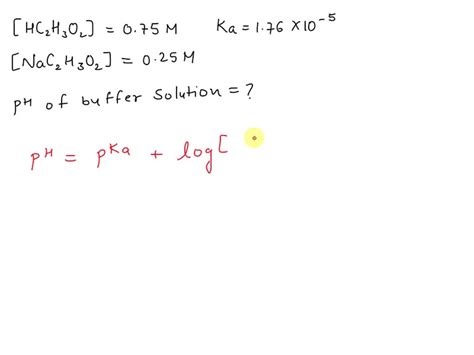 [HC₂H₃O₂] = 0.75 M Ka = 1.76 × 10⁻⁵
[NaC₂H₃O₂] = 0.25 M
pH of buffer solution = ?
pH = pKa + log[